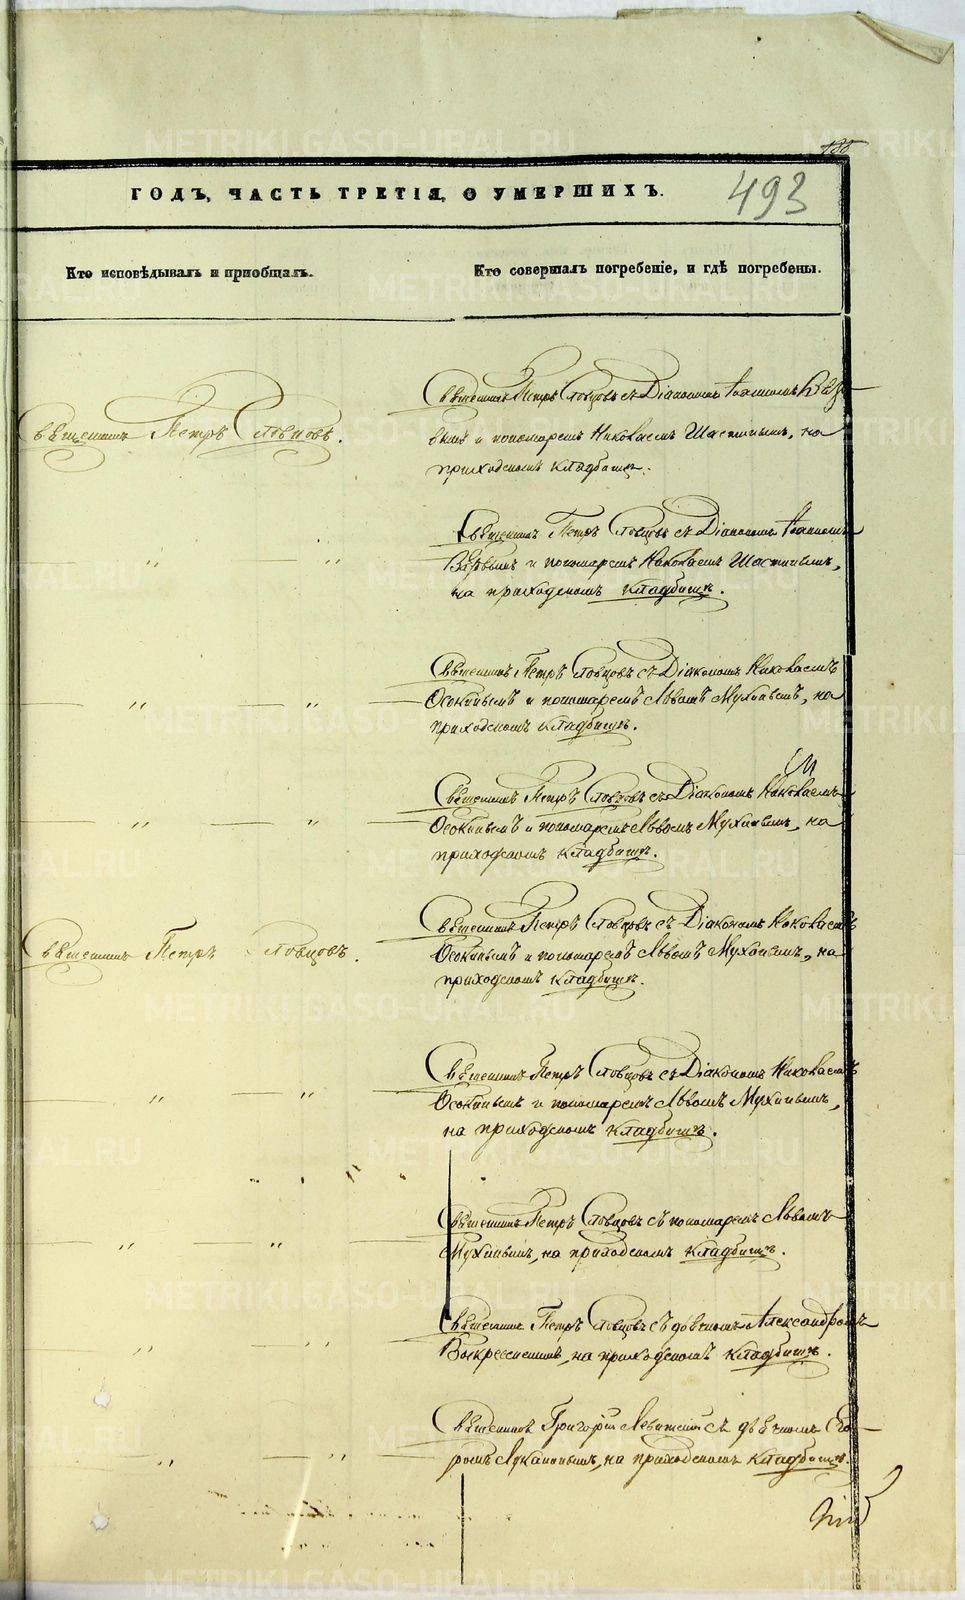 ГОДЪ, ЧАСТЬ ТРЕТІЯ, О УМЕРШИХЪ.
493
Кто исповѣдывалъ и приобщалъ.
Кто совершалъ погребеніе, и гдѣ погребены.
Священникъ Петръ Словцовъ.
Священникъ Петръ Словцовъ съ Діакономъ Іоанномъ
и пономаремъ Николаемъ на
приходскомъ кладбищѣ.
Священникъ Петръ Словцовъ съ Діакономъ Іоанномъ
и пономаремъ Николаемъ
на приходскомъ кладбищѣ.
Священникъ Петръ Словцовъ съ Діакономъ Николаемъ
Осокинымъ и пономаремъ Львомъ Мухинымъ, на
приходскомъ кладбищѣ.
Священникъ Петръ Словцовъ съ Діакономъ Николаемъ
Осокинымъ и пономаремъ Львомъ Мухинымъ, на
приходскомъ кладбищѣ.
Священникъ Петръ Словцовъ.
Священникъ Петръ Словцовъ съ Діакономъ Николаемъ
Осокинымъ и пономаремъ Львомъ Мухинымъ, на
приходскомъ кладбищѣ.
Священникъ Петръ Словцовъ съ Діакономъ Николаемъ
Осокинымъ и пономаремъ Львомъ Мухинымъ,
на приходскомъ кладбищѣ.
Священникъ Петръ Словцовъ съ пономаремъ Львомъ
Мухинымъ, на приходскомъ кладбищѣ.
Священникъ Петръ Словцовъ съ Александромъ
Воскресенскимъ, на приходскомъ кладбищѣ.
Священникъ Григорій съ
на приходскомъ кладбищѣ.
METRIKI.GASO-URAL.RU